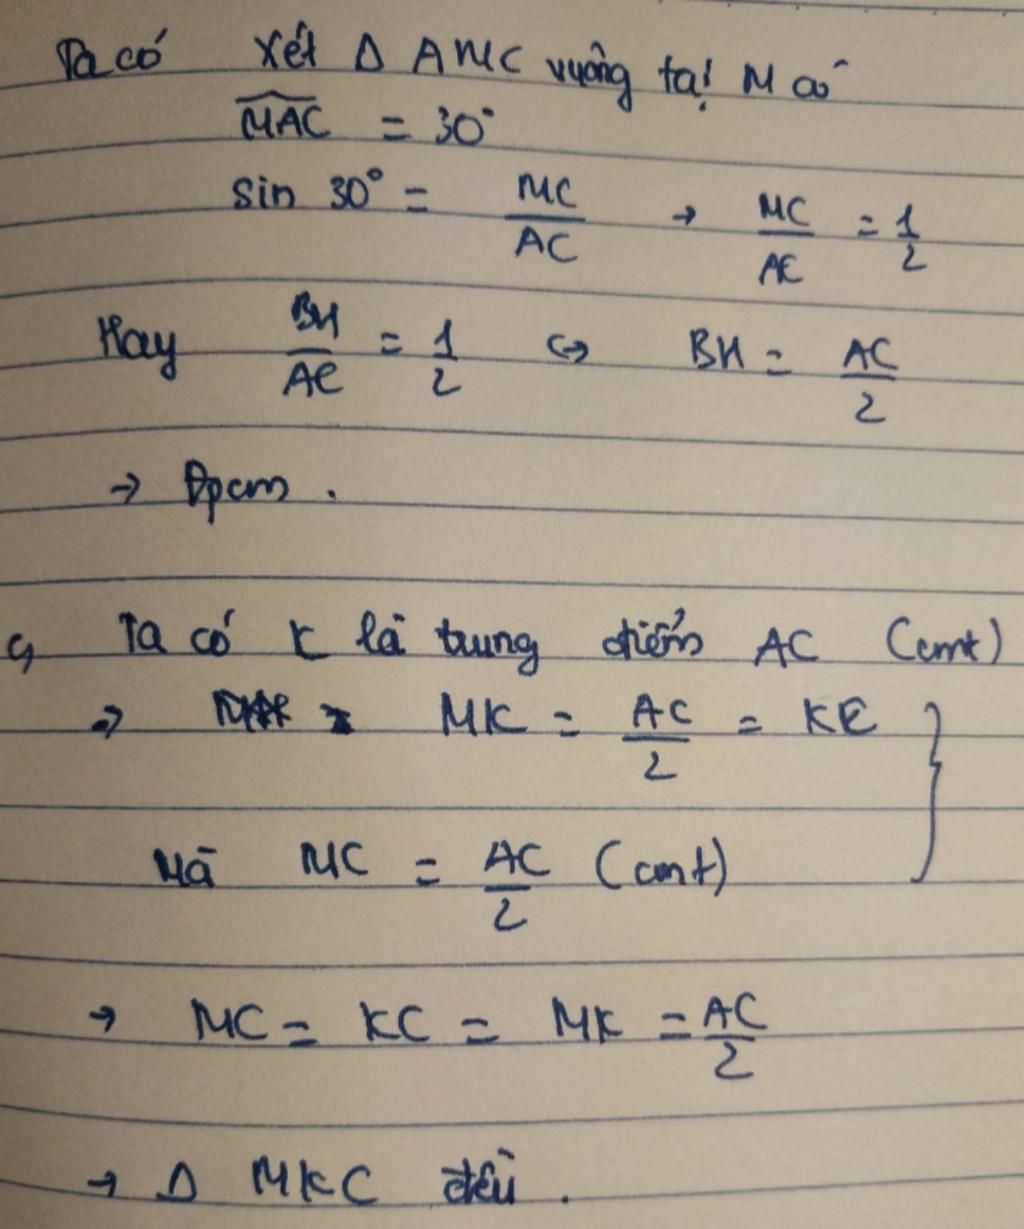 Ta có Xét Δ AMC vuông tại M có
MAC = 30°
sin 30° = MC/AC → MC/AC = 1/2
Hay BM/AC = 1/2 <=> BM = AC/2
→ Đpcm.
c, Ta có K là trung điểm AC (cmt)
=> MK = AC/2 = KC
Mà MC = AC/2 (cmt)
→ MC = KC = MK = AC/2
→ Δ MKC đều.